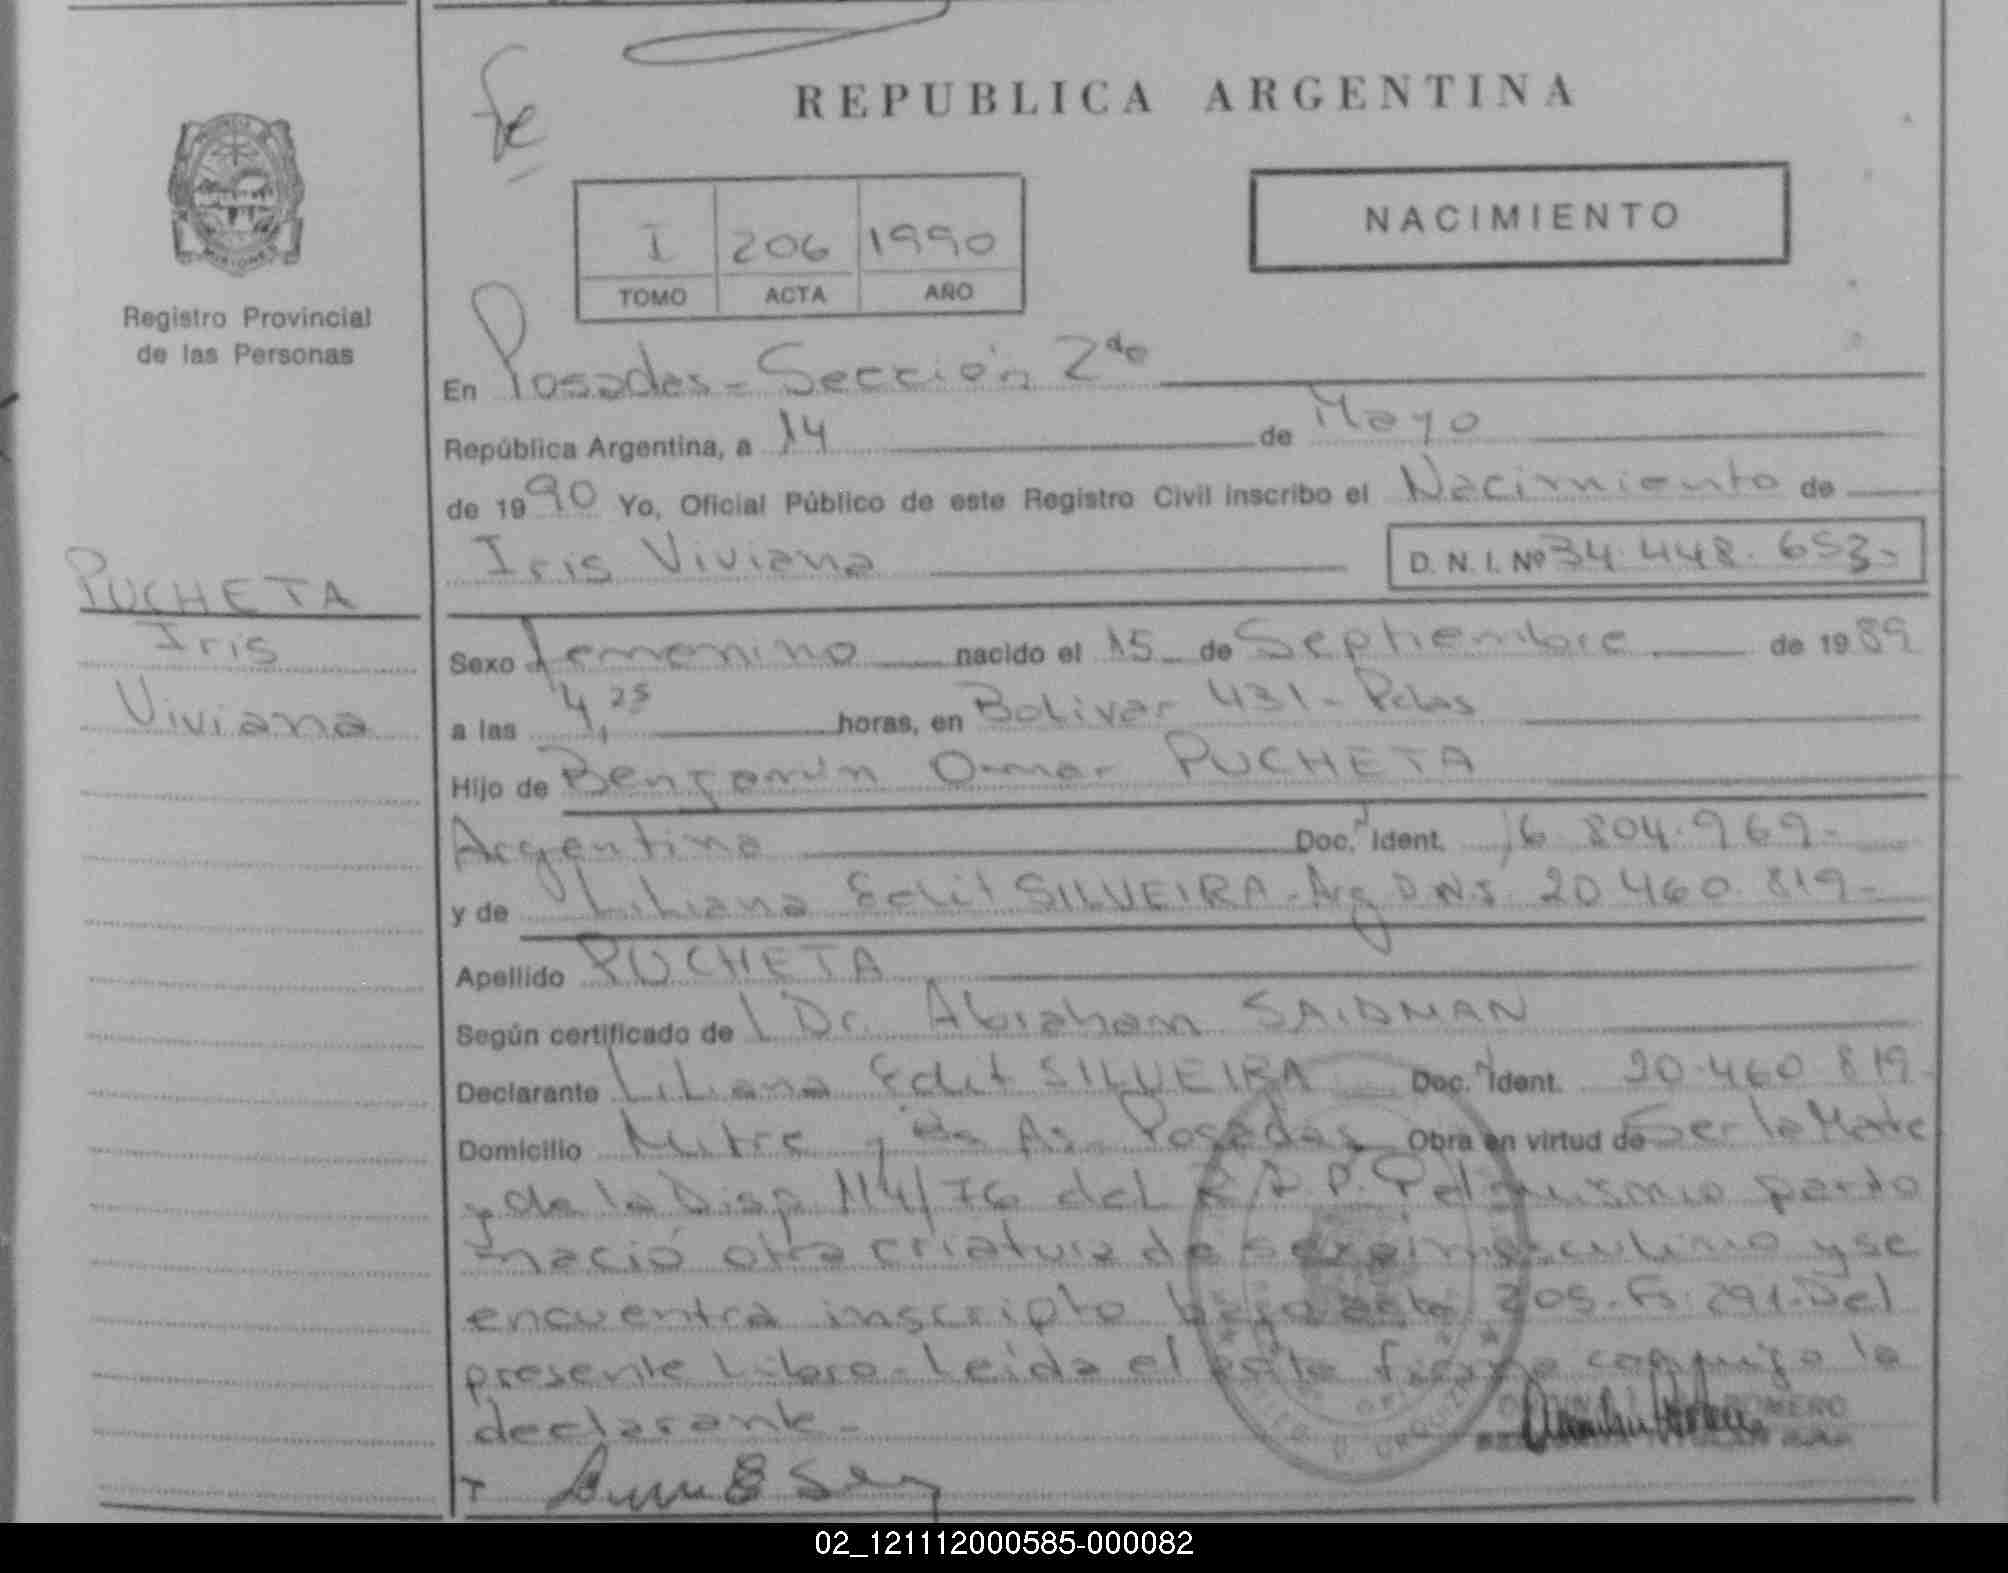 fe
REPUBLICA ARGENTINA
NACIMIENTO
I 206 1990
TOMO ACTA AÑO
MISIONES
Registro Provincial
de las Personas
En Posadas - Sección 2da
República Argentina, a 14 de Mayo
de 1990 Yo, Oficial Público de este Registro Civil inscribo el Nacimiento de
Iris Viviana D. N. I. Nº 34.448.653-
PUCHETA
Iris
Viviana
Sexo femenino nacido el 15 de Septiembre de 1989
a las 4,25 horas, en Bolivar 431 - Pdas
Hijo de Benjamín Omar PUCHETA
Argentino Doc. Ident. 16.804.969-
y de Liliana Edit SILVEIRA - Arg D.N.I. 20.460.819-
Apellido PUCHETA
Según certificado de Dr. Abraham SAIDMAN
Declarante Liliana Edit SILVEIRA Doc. Ident. 20.460.819-
Domicilio Mitre y Bs As - Posadas Obra en virtud de Ser la Madre
y de la Disp. 114/76 del R.P.P. del mismo parto
nació otra criatura de sexo masculino y se
encuentra inscripto bajo acta 205 - Fs. 291 - Del
presente Libro - Leida el acta firma conmigo la
declarante -
ROMERO
02_121112000585-000082